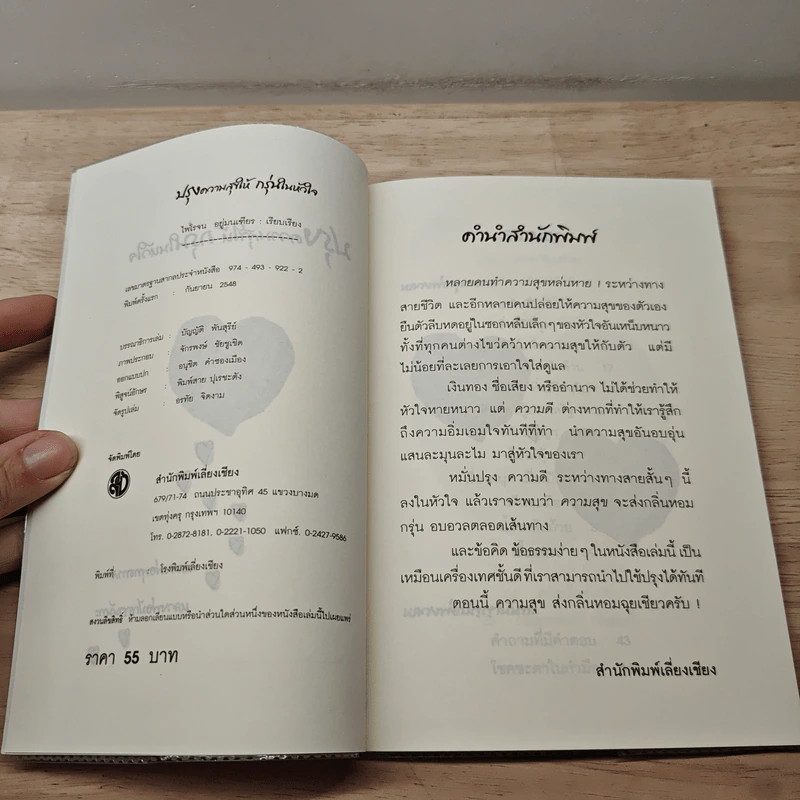 ปรุงความสุขให้ กรุ่นในหัวใจ
ไพโรจน์ อยู่มนเฑียร : เรียบเรียง
เลขมาตรฐานสากลประจำหนังสือ 974 - 493 - 922 - 2
พิมพ์ครั้งแรก : กันยายน 2548
บรรณาธิการเล่ม : บัญญัติ พันสุรีย์
ภาพประกอบ : จักรพงษ์ ชัยชูเชิด
ออกแบบปก : อนุชิต คำซองเมือง
พิสูจน์อักษร : พิมพ์สาย ปุเรชะตัง
จัดรูปเล่ม : อรทัย จิตงาม
จัดพิมพ์โดย
สำนักพิมพ์เลี่ยงเชียง
679/71-74 ถนนประชาอุทิศ 45 แขวงบางมด
เขตทุ่งครุ กรุงเทพฯ 10140
โทร. 0-2872-8181, 0-2221-1050 แฟกซ์. 0-2427-9586
พิมพ์ที่ : โรงพิมพ์เลี่ยงเชียง
สงวนลิขสิทธิ์ ห้ามลอกเลียนแบบหรือนำส่วนใดส่วนหนึ่งของหนังสือเล่มนี้ไปเผยแพร่
ราคา 55 บาท
คำนำสำนักพิมพ์
หลายคนทำความสุขหล่นหาย ! ระหว่างทาง
สายชีวิต และอีกหลายคนปล่อยให้ความสุขของตัวเอง
ยืนตัวลีบหดอยู่ในซอกหลืบเล็กๆ ของหัวใจอันเหน็บหนาว
ทั้งที่ทุกคนต่างไขว่คว้าหาความสุขให้กับตัว แต่มี
ไม่น้อยที่ละเลยการเอาใจใส่ดูแล
เงินทอง ชื่อเสียง หรืออำนาจ ไม่ได้ช่วยทำให้
หัวใจหายหนาว แต่ ความดี ต่างหากที่ทำให้เรารู้สึก
ถึงความอิ่มเอมใจทันทีที่ทำ นำความสุขอันอบอุ่น
แสนละมุนละไม มาสู่หัวใจของเรา
หมั่นปรุง ความดี ระหว่างทางสายสั้นๆ นี้
ลงในหัวใจ แล้วเราจะพบว่า ความสุข จะส่งกลิ่นหอม
กรุ่น อบอวลตลอดเส้นทาง
และข้อคิด ข้อธรรมง่ายๆ ในหนังสือเล่มนี้ เป็น
เหมือนเครื่องเทศชั้นดีที่เราสามารถนำไปใช้ปรุงได้ทันที
ตอนนี้ ความสุข ส่งกลิ่นหอมฉุยเชียวครับ !
สำนักพิมพ์เลี่ยงเชียง